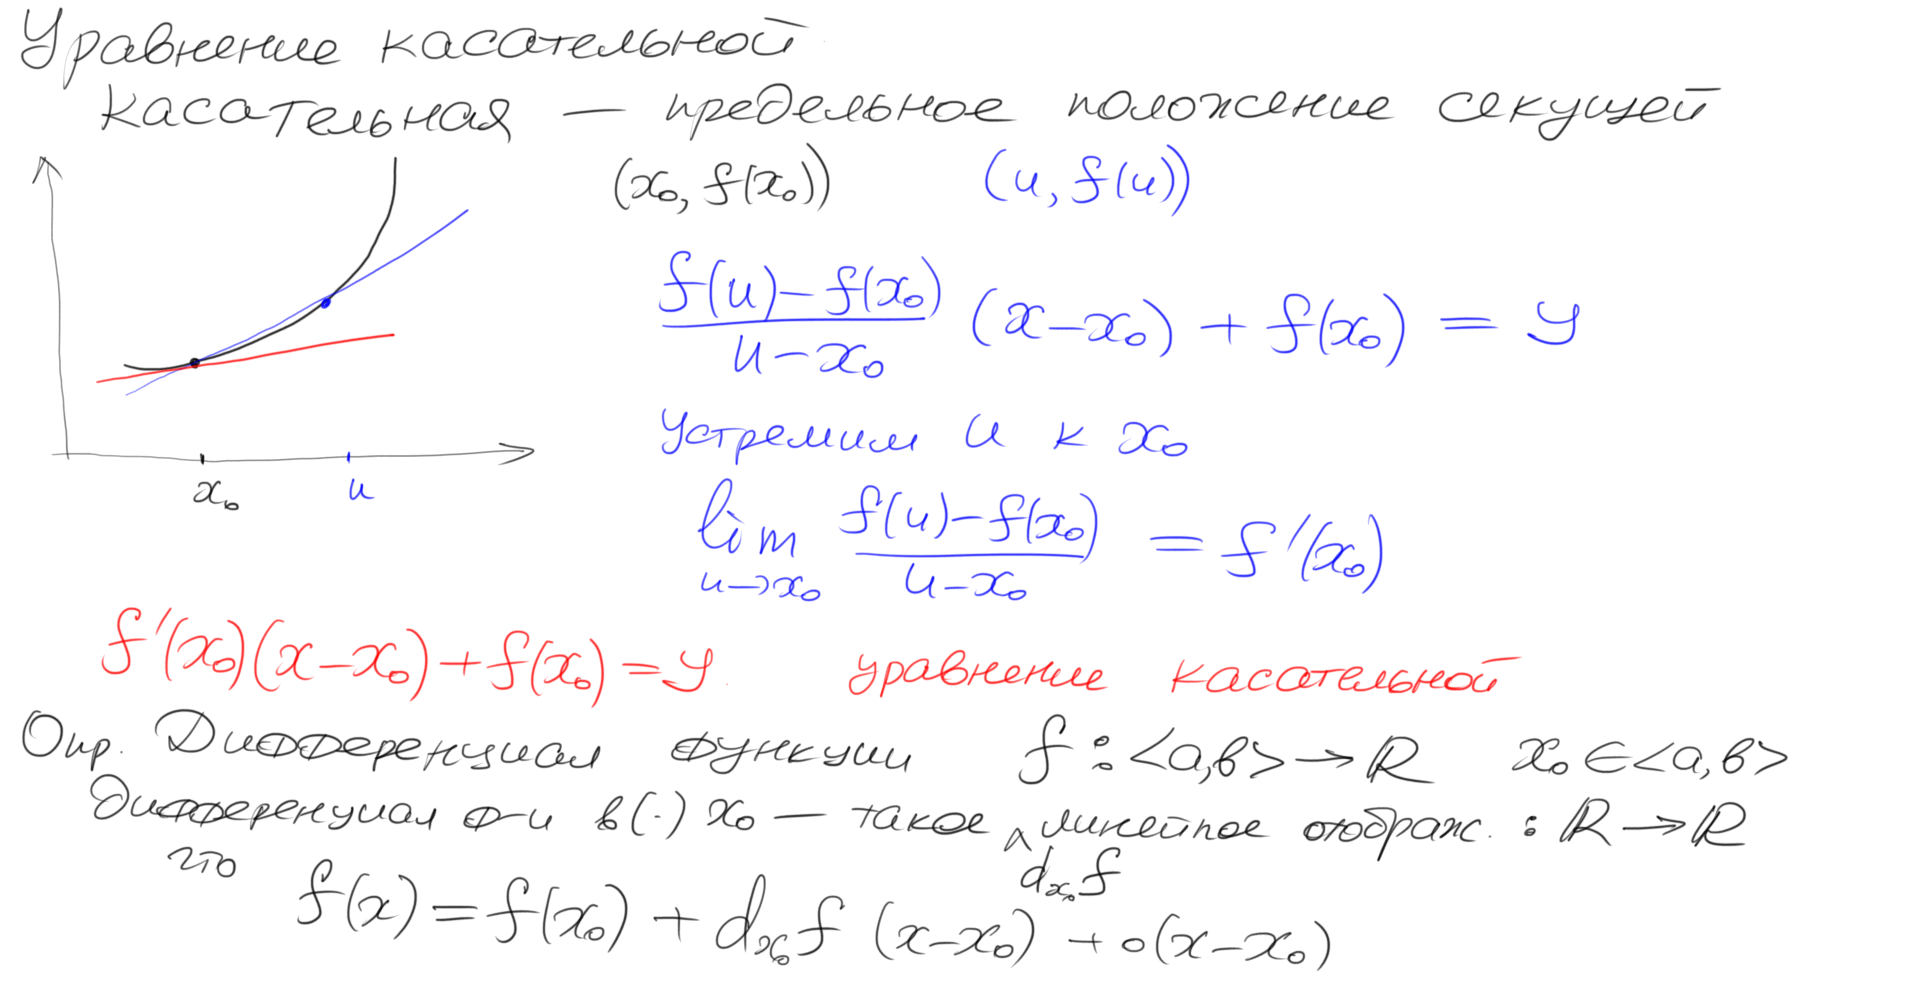 Уравнение касательной
касательная — предельное положение секущей
(x₀, f(x₀)) (u, f(u))
(f(u)−f(x₀))/(u−x₀) (x−x₀) + f(x₀) = y
устремим u к x₀
x₀ u
lim u→x₀ (f(u)−f(x₀))/(u−x₀) = f′(x₀)
f′(x₀)(x−x₀)+f(x₀)=y уравнение касательной
Опр. Дифференциал функции f : <a,b> → ℝ x₀ ∈ <a,b>
Дифференциал ф-и в (·) x₀ — такое ^ линейное отображ. : ℝ → ℝ
что d_{x₀}f
f(x) = f(x₀) + d_{x₀}f (x−x₀) + o(x−x₀)